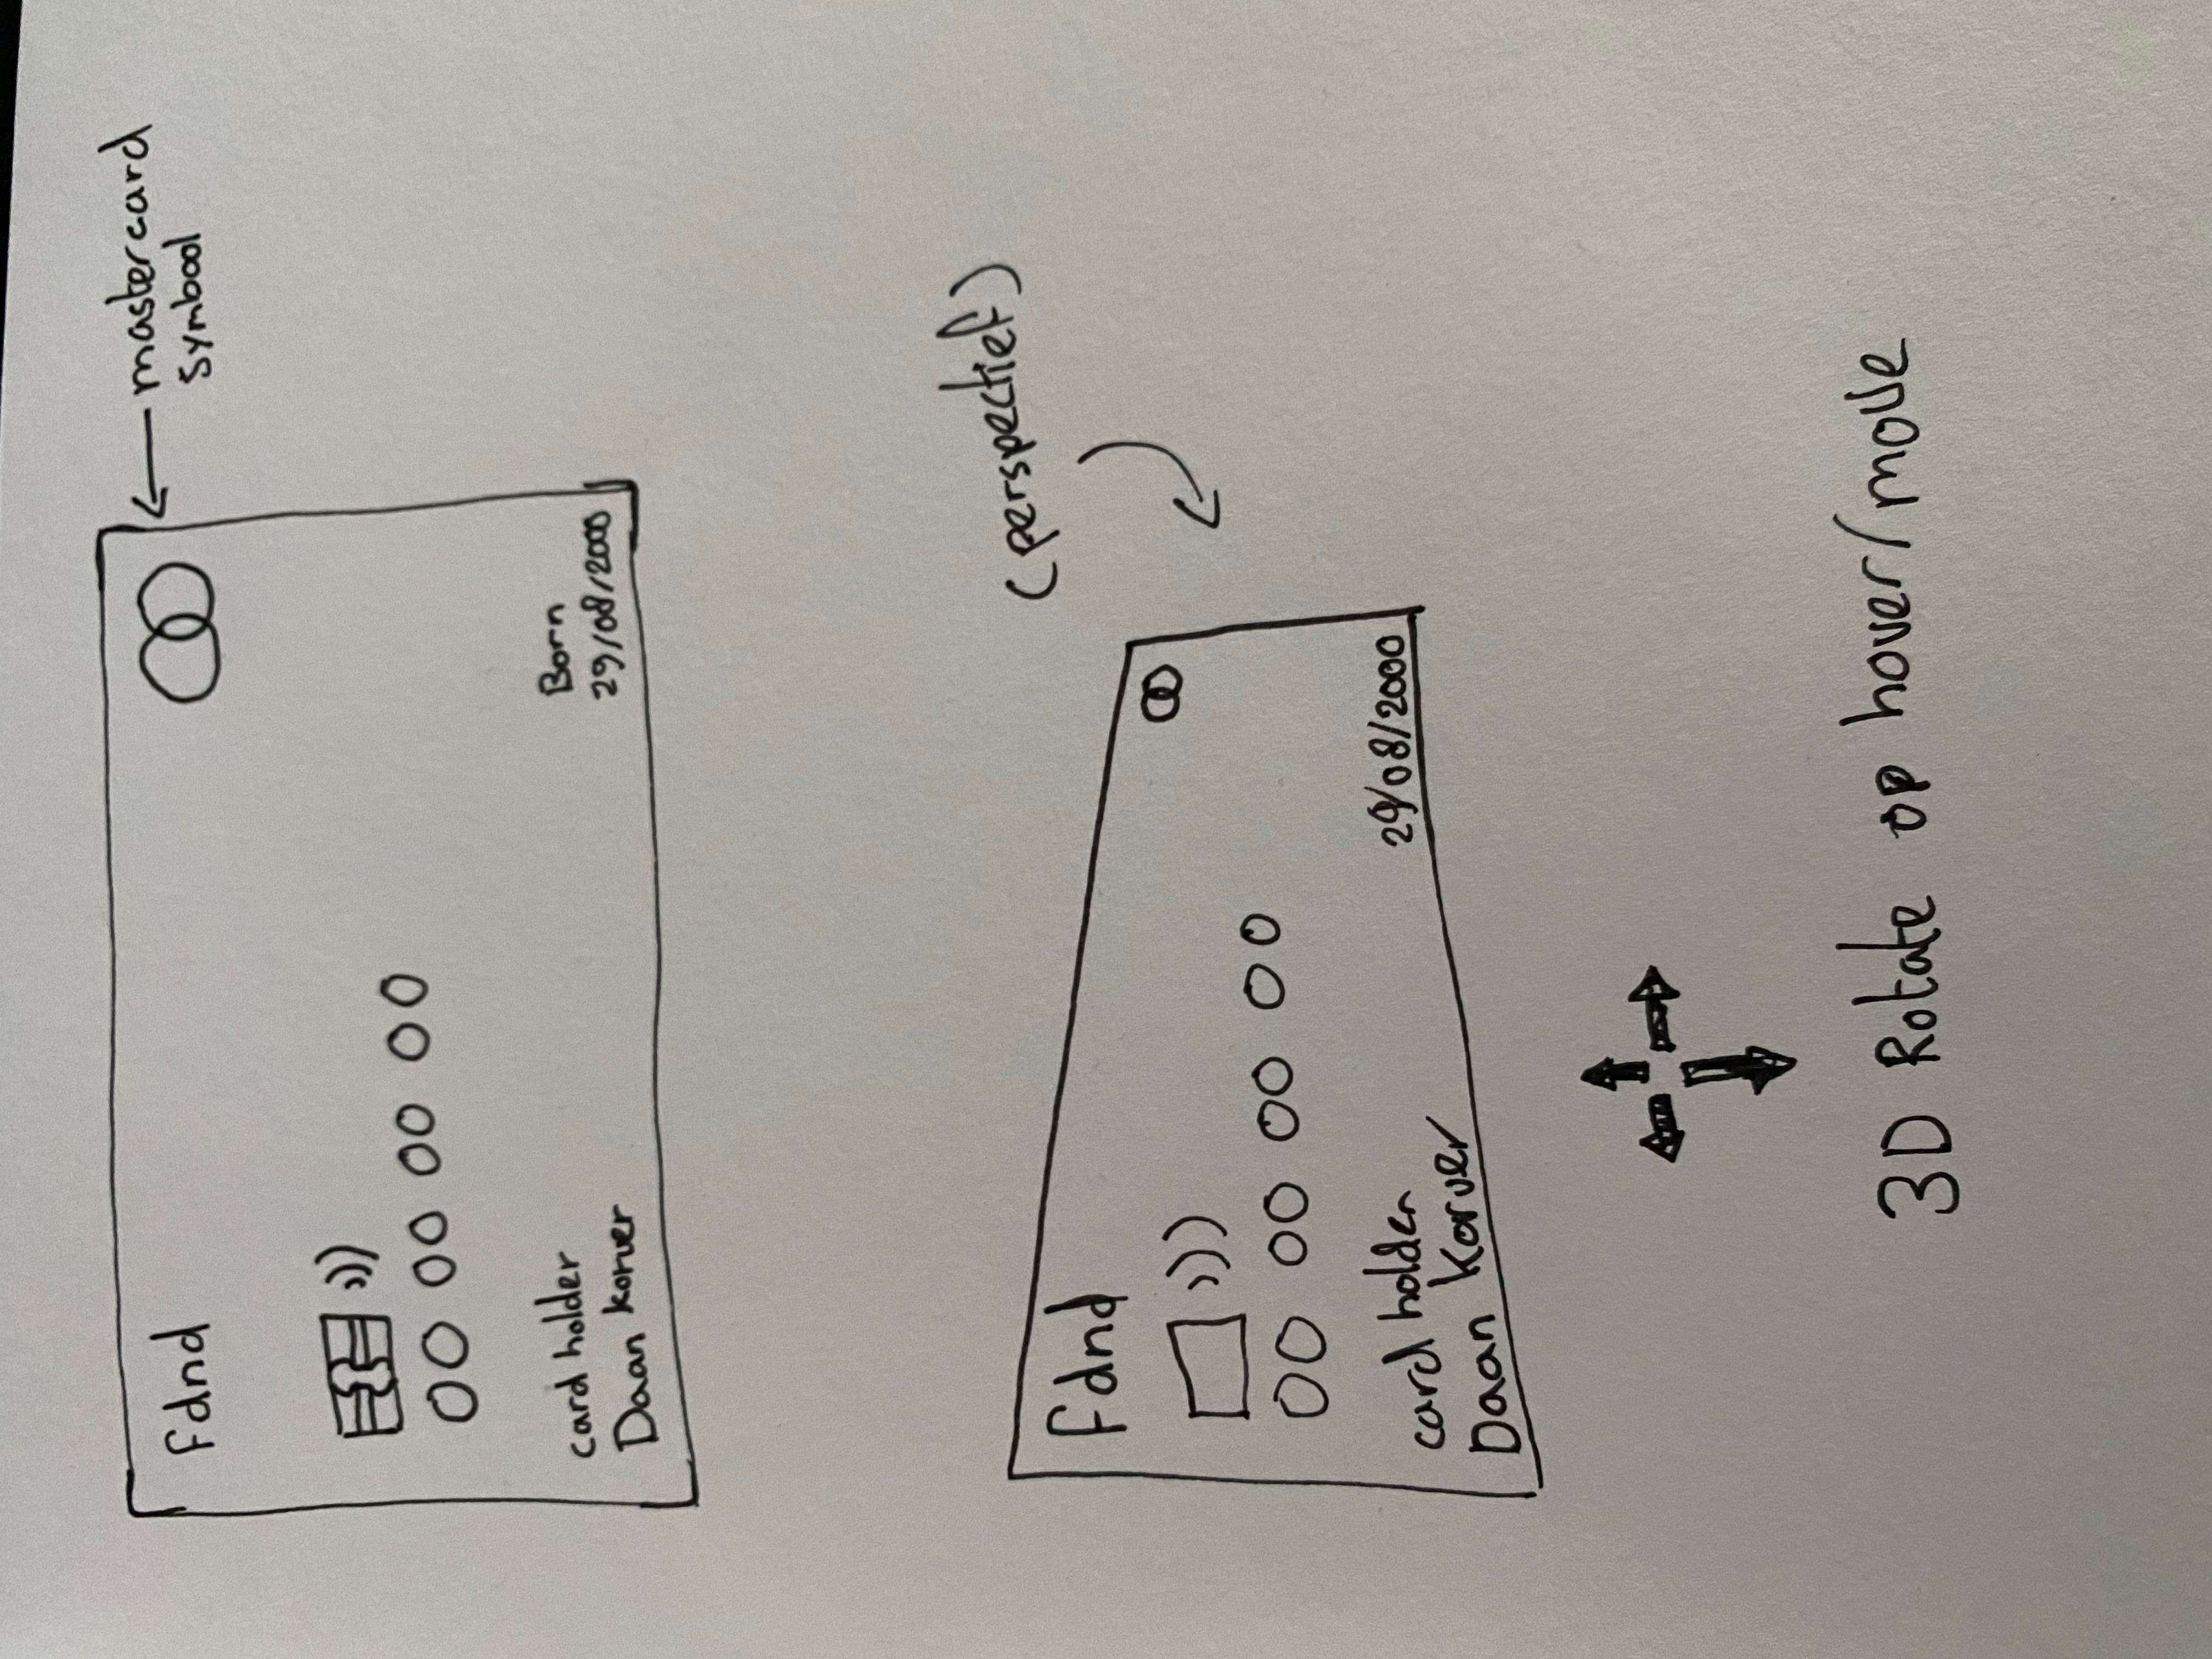 fdnd
mastercard
symbool
00 00 00 00
card holder
Daan korver
Born
29/08/2000
(perspectief)
fdnd
00 00 00 00
29/08/2000
card holder
Daan Korver
3D Rotate op hover/move